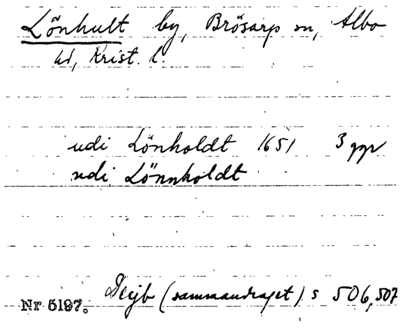 Lönhult by, Brösarp sn, Albo
hd, Krist. l.
udi Lönholdt 1651 3 ggr
udi Lönnholdt
Dejb (sammandraget) s 506, 507
Nr 5197.